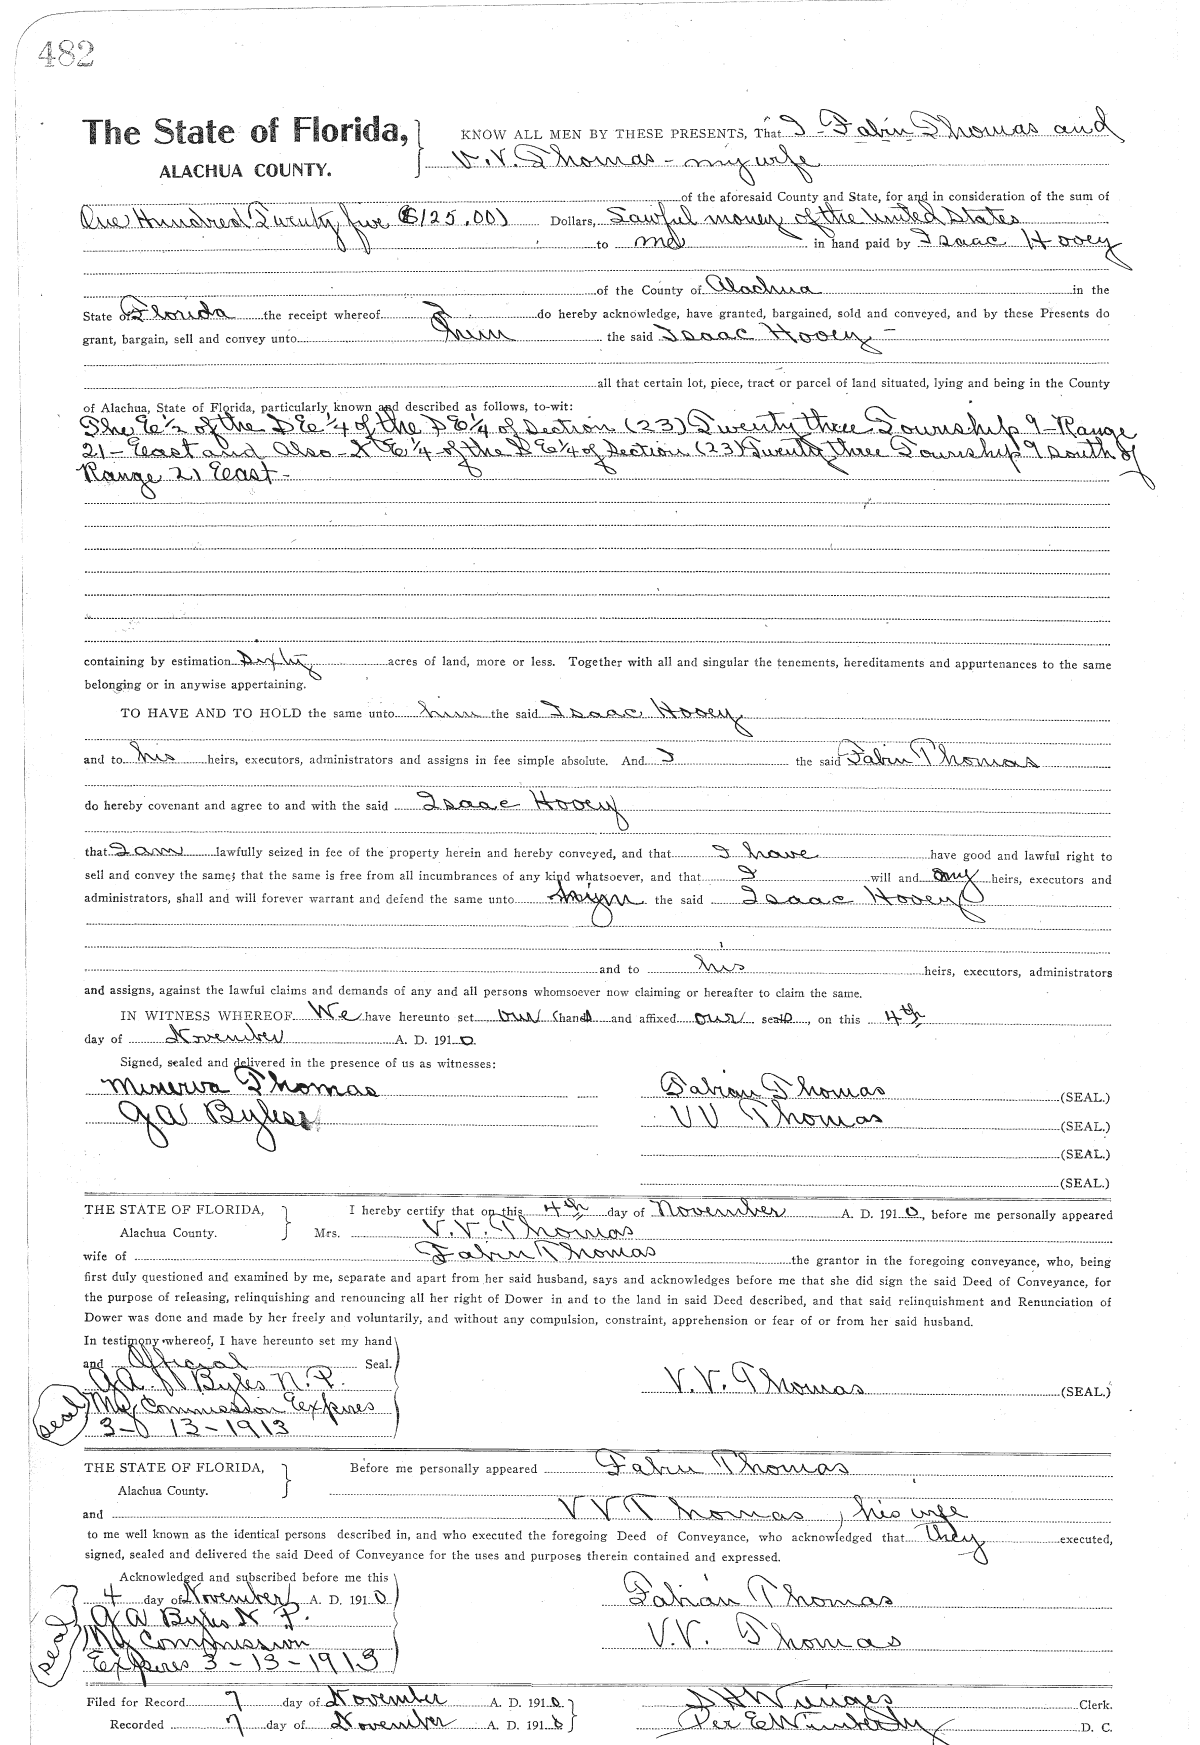 482
The State of Florida,
ALACHUA COUNTY.
KNOW ALL MEN BY THESE PRESENTS, That I - Fabin Thomas and
V. V. Thomas - my wife
of the aforesaid County and State, for and in consideration of the sum of
One Hundred Twenty five ($125.00) Dollars, Lawful money of the United States
to me in hand paid by Isaac Hooey
of the County of Alachua in the
State of Florida the receipt whereof I do hereby acknowledge, have granted, bargained, sold and conveyed, and by these Presents do
grant, bargain, sell and convey unto him the said Isaac Hooey -
all that certain lot, piece, tract or parcel of land situated, lying and being in the County
of Alachua, State of Florida, particularly known and described as follows, to-wit:
The E 1/2 of the S E 1/4 of the S E 1/4 of Section (23) Twenty three Township 9 - Range
21 - East and Also - N E 1/4 of the S E 1/4 of Section (23) Twenty three Township 9 South of
Range 21 East -
containing by estimation Sixty acres of land, more or less. Together with all and singular the tenements, hereditaments and appurtenances to the same
belonging or in anywise appertaining.
TO HAVE AND TO HOLD the same unto him the said Isaac Hooey
and to his heirs, executors, administrators and assigns in fee simple absolute. And I the said Fabin Thomas
do hereby covenant and agree to and with the said Isaac Hooey
that I am lawfully seized in fee of the property herein and hereby conveyed, and that I have have good and lawful right to
sell and convey the same; that the same is free from all incumbrances of any kind whatsoever, and that I will and my heirs, executors and
administrators, shall and will forever warrant and defend the same unto the said Isaac Hooey
and to his heirs, executors, administrators
and assigns, against the lawful claims and demands of any and all persons whomsoever now claiming or hereafter to claim the same.
IN WITNESS WHEREOF We have hereunto set our hand and affixed our seal, on this 4th
day of November A. D. 1910.
Signed, sealed and delivered in the presence of us as witnesses:
Minerva Thomas Fabian Thomas (SEAL.)
G A Byles V V Thomas (SEAL.)
(SEAL.)
(SEAL.)
THE STATE OF FLORIDA, I hereby certify that on this 4th day of November A. D. 1910, before me personally appeared
Alachua County. Mrs. V. V. Thomas
wife of Fabin Thomas the grantor in the foregoing conveyance, who, being
first duly questioned and examined by me, separate and apart from her said husband, says and acknowledges before me that she did sign the said Deed of Conveyance, for
the purpose of releasing, relinquishing and renouncing all her right of Dower in and to the land in said Deed described, and that said relinquishment and Renunciation of
Dower was done and made by her freely and voluntarily, and without any compulsion, constraint, apprehension or fear of or from her said husband.
In testimony whereof, I have hereunto set my hand
and Official Seal.
G A Byles N. P. V. V. Thomas (SEAL.)
seal My Commission Expires
3 - 13 - 1913
THE STATE OF FLORIDA, Before me personally appeared Fabin Thomas
Alachua County.
and V V Thomas, his wife
to me well known as the identical persons described in, and who executed the foregoing Deed of Conveyance, who acknowledged that They executed,
signed, sealed and delivered the said Deed of Conveyance for the uses and purposes therein contained and expressed.
Acknowledged and subscribed before me this
4 day of November A. D. 1910 Fabian Thomas
G A Byles N. P.
seal My Commission V. V. Thomas
Expires 3 - 13 - 1913
Filed for Record 7 day of November A. D. 1910 S H Wienges Clerk.
Recorded 7 day of November A. D. 1910 Per E Wimberly D. C.